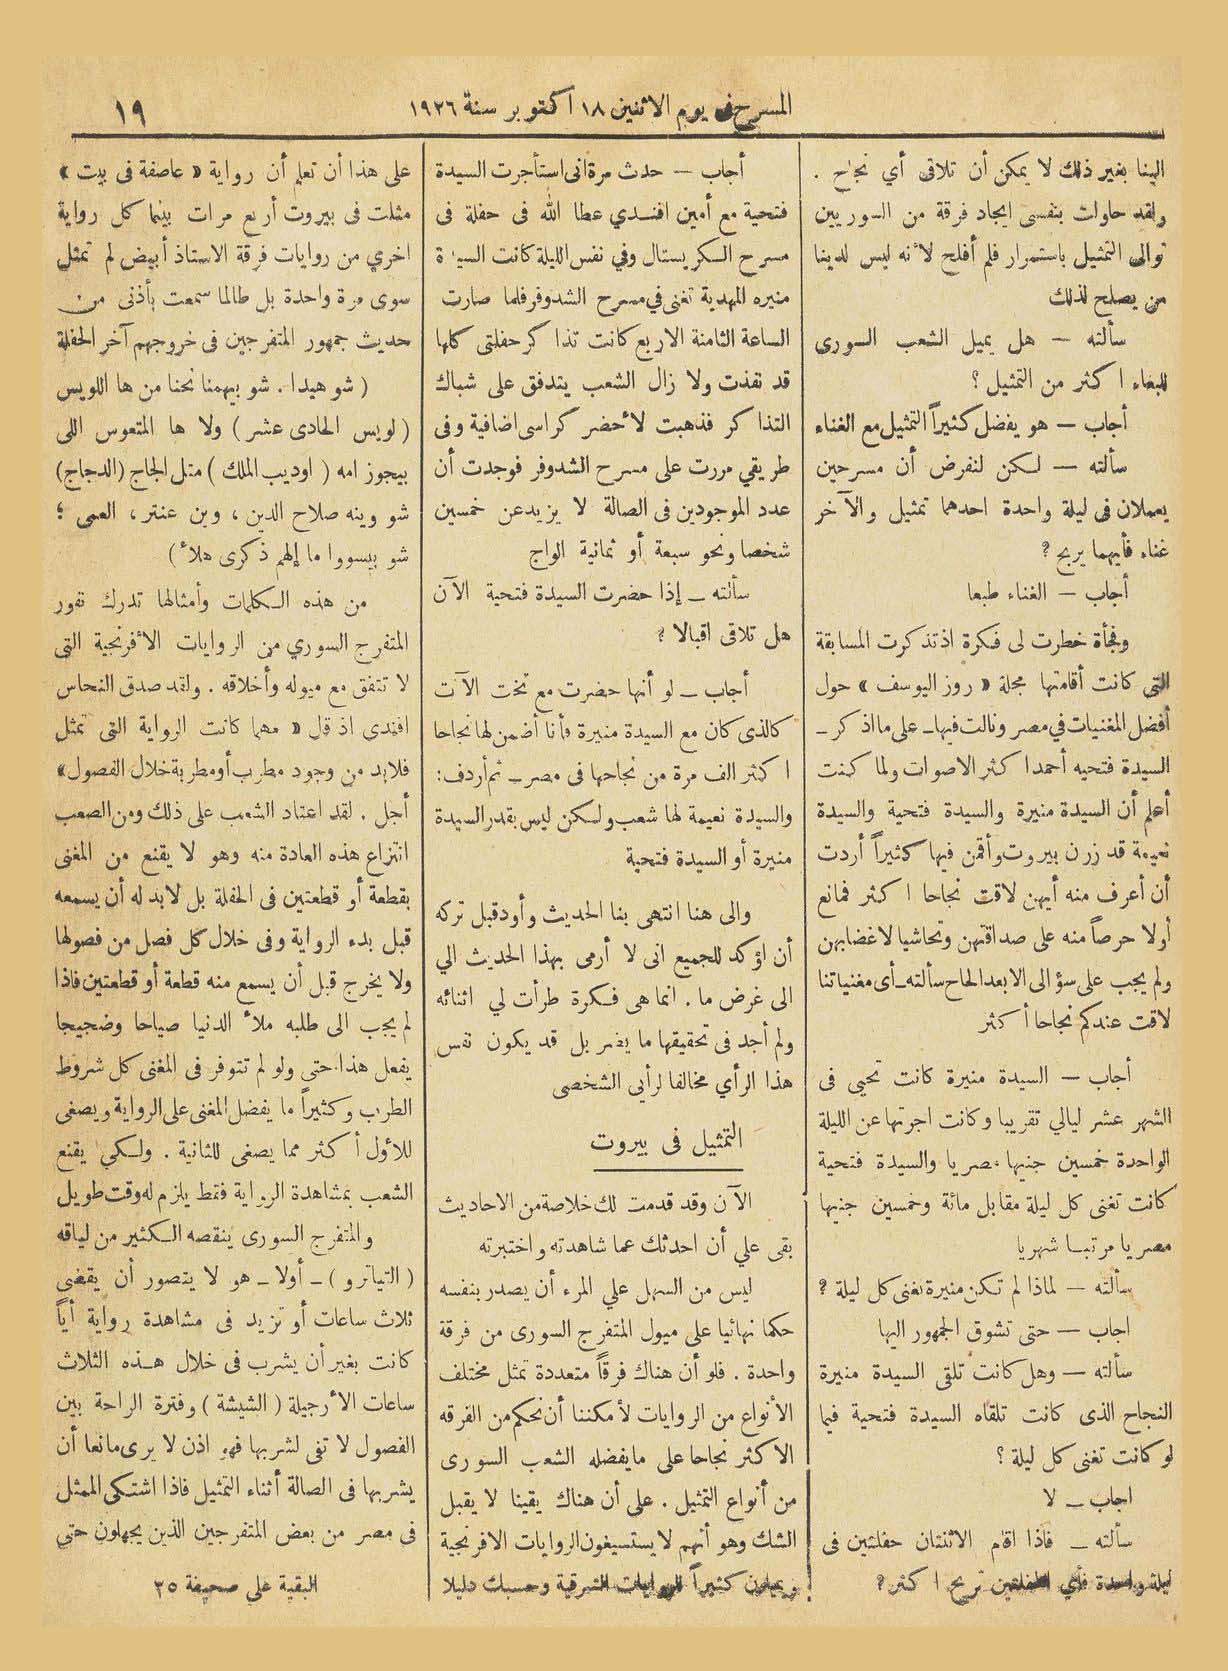 المسرح في يوم الاثنين ١٨ اكتوبر سنة ١٩٢٦
١٩
الينا بغير ذلك لا يمكن أن تلاقى أي نجاح .
ولقد حاولت بنفسى ايجاد فرقة من السوريين
توالى التمثيل باستمرار فلم أفلح لأنه ليس لدينا
من يصلح لذلك
سألته — هل يميل الشعب السورى
للبغاء اكثر من التمثيل ؟
أجاب — هو يفضل كثيراً التمثيل مع الغناء
سألته — لكن لنفرض أن مسرحين
يعملان فى ليلة واحدة احدهما تمثيل والآخر
غناء فأيهما يربح ؟
أجاب — الغناء طبعا
وفجأة خطرت لى فكرة اذ تذكرت المسابقة
التى كانت أقامتها مجلة « روز اليوسف » حول
أفضل المغنيات في مصر ونالت فيها ــ على ما اذكر ــ
السيدة فتحيه أحمد اكثر الاصوات ولما كنت
أعلم أن السيدة منيرة والسيدة فتحية والسيدة
نعيمة قد زرن بيروت وأقمن فيها كثيراً أردت
أن أعرف منه أيهن لاقت نجاحا اكثر فمانع
أولا حرصاً منه على صداقتهن وتحاشيا لاغضابهن
ولم يجب على سؤالى الا بعد الحاح سألته ــ أى مغنياتنا
لاقت عندكم نجاحا أكثر
أجاب — السيدة منيرة كانت تحيى فى
الشهر عشر ليالي تقريبا وكانت اجرتها عن الليلة
الواحدة خمسين جنيها مصريا والسيدة فتحية
كانت تغنى كل ليلة مقابل مائة وخمسين جنيها
مصريا مرتبا شهريا
سألته — لماذا لم تكن منيرة تغنى كل ليلة ؟
اجاب — حتى تشوق الجمهور اليها
سألته — وهل كانت تلقى السيدة منيرة
النجاح الذى كانت تلقاه السيدة فتحية فيما
لو كانت تغنى كل ليلة ؟
اجاب ــ لا
سألته ــ فاذا اقام الاثنتان حفلتين فى
ليلة واحدة فأي الحفلتين تربح اكثر ؟
أجاب — حدث مرة انى استأجرت السيدة
فتحية مع أمين افندي عطا الله فى حفلة فى
مسرح السكريستال وفي نفس الليلة كانت السيدة
منيره المهدية تغنى في مسرح الشدوفر فلما صارت
الساعة الثامنة الا ربع كانت تذاكر حفلتى كلها
قد نفذت ولا زال الشعب يتدفق على شباك
التذاكر فذهبت لأحضر كراسى اضافية وفى
طريقي مررت على مسرح الشدوفر فوجدت أن
عدد الموجودين فى الصالة لا يزيد عن خمسين
شخصا ونحو سبعة أو ثمانية الواج
سألته ــ إذا حضرت السيدة فتحية الآن
هل تلاقى اقبالا ؟
أجاب ــ لو أنها حضرت مع تخت الآن
كالذى كان مع السيدة منيرة فأنا أضمن لها نجاحا
اكثر الف مرة من نجاحها فى مصر ــ ثم أردف :
والسيدة نعيمة لها شعب ولكن ليس بقدر السيدة
منيرة أو السيدة فتحية
والى هنا انتهى بنا الحديث وأود قبل تركه
أن اؤكد للجميع انى لا أرمى بهذا الحديث الي
الى غرض ما . انما هى فكرة طرأت لي اثنائه
ولم أجد فى تحقيقها ما يضر بل قد يكون نفس
هذا الرأي مخالفا لرأيى الشخصى
التمثيل فى بيروت
الآن وقد قدمت لك خلاصة من الاحاديث
بقى علي أن احدثك عما شاهدته واختبرته
ليس من السهل علي المرء أن يصدر بنفسه
حكما نهائيا على ميول المتفرج السورى من فرقة
واحدة . فلو أن هناك فرقاً متعددة تمثل مختلف
الأنواع من الروايات لأمكننا أن نحكم من الفرقه
الاكثر نجاحا على ما يفضله الشعب السورى
من أنواع التمثيل . على أن هناك يقينا لا يقبل
الشك وهو أنهم لا يستسيغون الروايات الافرنجية
ويميلون كثيراً للروايات الشرقية وحسبك دليلا
على هذا أن تعلم أن رواية « عاصفة فى بيت »
مثلت فى بيروت أربع مرات بينما كل رواية
اخري من روايات فرقة الاستاذ أبيض لم تمثل
سوى مرة واحدة بل طالما سمعت بأذنى من
حديث جمهور المتفرجين فى خروجهم آخر الحفلة
( شو هيدا . شو بيهمنا نحنا من ها اللويس
( لويس الحادى عشر ) ولا ها المتعوس اللى
بيجوز امه ( اوديب الملك ) متل الجاج (الدجاج)
شو وينه صلاح الدين ، وين عنتر ، العمى ؛
شو بيسووا ما إلهم ذكرى هلأ )
من هذه الكلمات وأمثالها تدرك نفور
المتفرج السوري من الروايات الأفرنجية التى
لا تتفق مع ميوله وأخلاقه . ولقد صدق النحاس
افندى اذ قال « مهما كانت الرواية التى تمثل
فلابد من وجود مطرب أو مطربة خلال الفصول»
أجل . لقد اعتاد الشعب على ذلك ومن الصعب
انتزاع هذه العادة منه وهو لا يقنع من المغنى
بقطعة أو قطعتين فى الحفلة بل لابد له أن يسمعه
قبل بدء الرواية وفى خلال كل فصل من فصولها
ولا يخرج قبل أن يسمع منه قطعة أو قطعتين فاذا
لم يجب الى طلبه ملأ الدنيا صياحا وضجيجا
يفعل هذا حتى ولو لم تتوفر فى المغنى كل شروط
الطرب وكثيراً ما يفضل المغنى على الرواية ويصغى
للأول أكثر مما يصغى للثانية . ولكي يقنع
الشعب بمشاهدة الرواية فقط يلزم له وقت طويل
والمتفرج السورى ينقصه الكثير من لياقه
( التياترو ) ــ أولا ــ هو لا يتصور أن يقضى
ثلاث ساعات أو تزيد فى مشاهدة رواية أياً
كانت بغير أن يشرب فى خلال هذه الثلاث
ساعات الأرجيلة ( الشيشة ) وفترة الراحة بين
الفصول لا تفى لشربها فهو اذن لا يرى مانعا أن
يشربها فى الصالة أثناء التمثيل فاذا اشتكى الممثل
فى مصر من بعض المتفرجين الذين يجهلون حتى
البقية علي صحيفة ٢٥